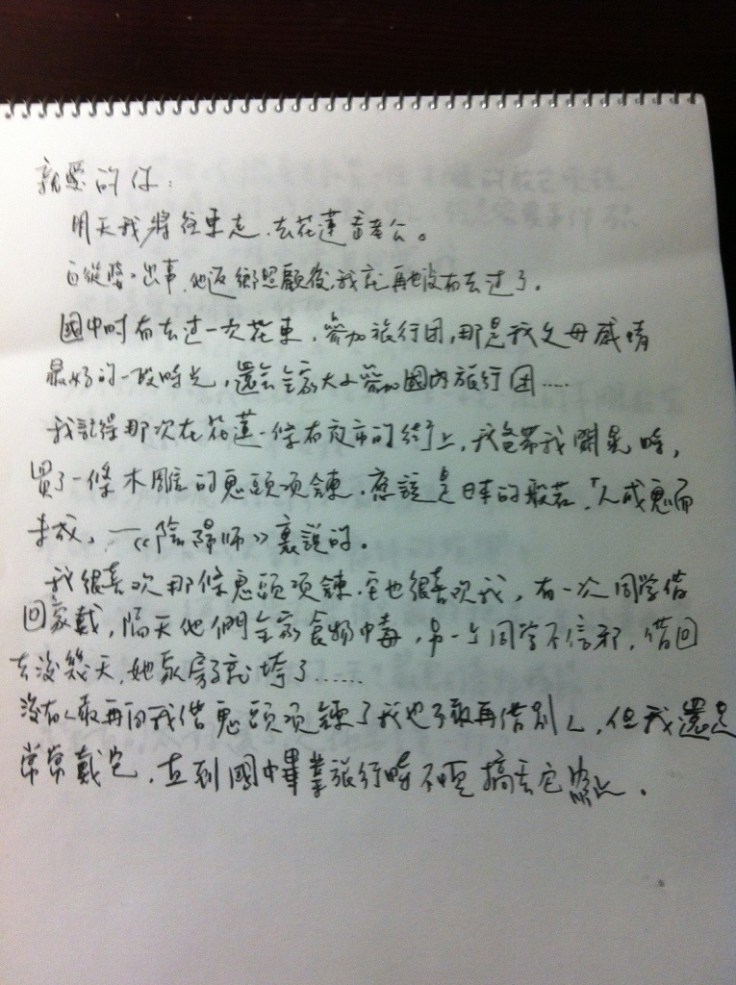 親愛的你：
明天我將往東走，去花蓮看老公。
自從婆婆出事，他返鄉照顧後，我就再也沒有去过了。
國中时有去过一次花東，參加旅行团，那是我父母感情
最好的一段時光，還会全家大小參加國內旅行团……
我記得那次在花蓮一條有夜市的街上，我爸帶我閒晃時，
買了一條木雕的鬼頭項鍊，應該是日本的般若，「人成鬼而
未成」—《陰陽師》裏說的。
我很喜欢那條鬼頭項鍊，它也很喜欢我，有一次同学借
回家戴，隔天他們全家食物中毒，另一个同学不信邪，借回
去沒幾天，她家房子就垮了……
沒有人敢再向我借鬼頭項鍊了我也不敢再借別人，但我還是
常常戴它，直到國中畢業旅行時不小心搞丟它為止。